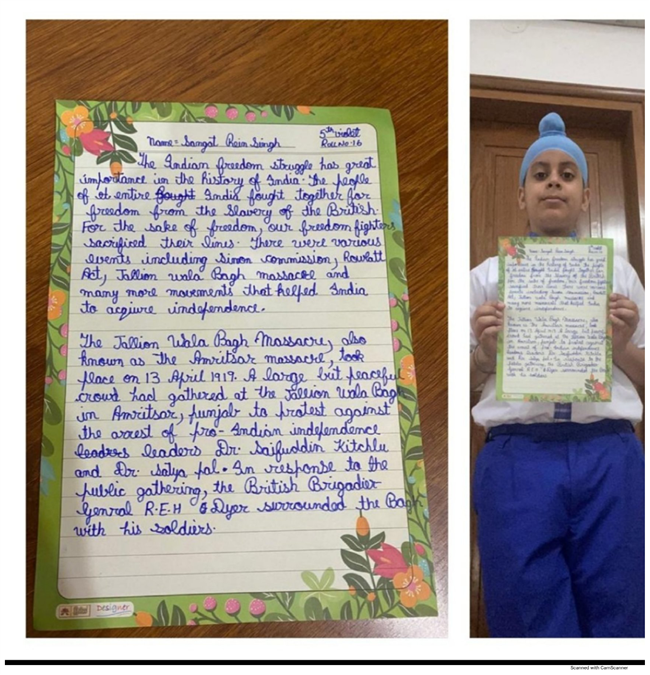 Name:- Sangat Rein Singh
5th violet
Roll No:16
The Indian freedom struggle has great
importance in the history of India. The people
of at entire fought India fought together for
freedom from the slavery of the British.
For the sake of freedom, our freedom fighters
sacrificed their lines. There were various
events including Simon commission, Rowlatt
Act, Jallion wala Bagh massacre and
many more movements that helped India
to acquire independence.
The Jallion Wala Bagh Massacre, also
known as the Amritsar massacre, took
place on 13 April 1919. A large but peaceful
crowd had gathered at the Jallion Wala Bagh
in Amritsar, punjab to protest against
the arrest of pro-Indian independence
leadres leaders Dr. Saifuddin Kitchlu
and Dr. Satya pal. In response to the
public gathering, the British Brigadier
Genral R.E.H Dyer surrounded the Bagh
with his soldiers.
Designer
Scanned with CamScanner